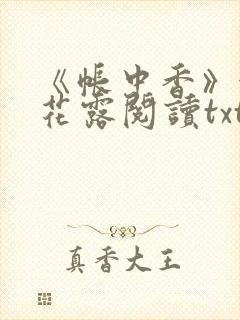 《帳中香》
花露閱讀txt
真香大王